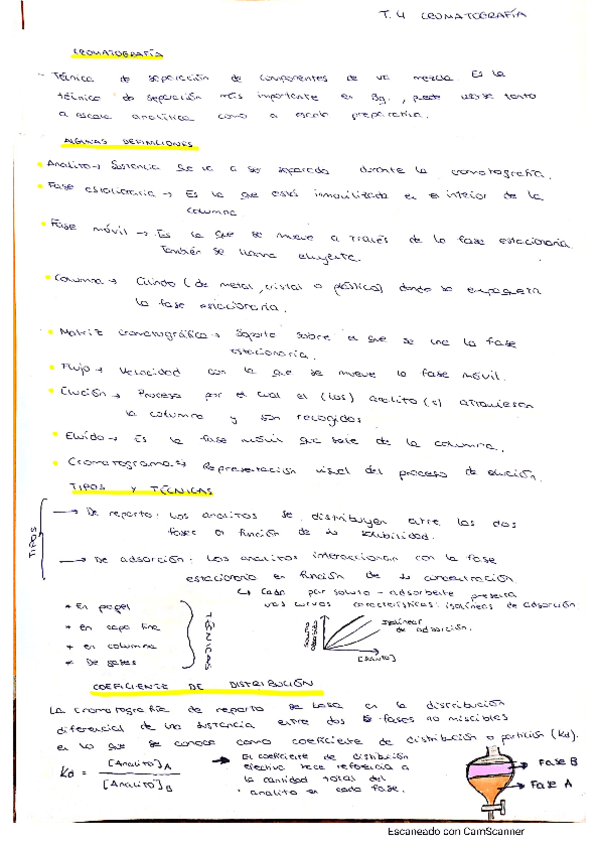 T.4 CROMATOGRAFÍA
CROMATOGRAFÍA
- Técnica de separación de componentes de una mezcla. Es la
técnica de separación más importante en Bq., puede usarse tanto
a escala analítica como a escala preparativa.
ALGUNAS DEFINICIONES
• Analito → Sustancia que va a ser separada durante la cromatografía.
• Fase estacionaria → Es la que está inmovilizada en el interior de la
columna.
• Fase móvil → Es la que se mueve a través de la fase estacionaria.
También se llama eluyente.
• Columna → Cilindro (de metal, cristal o plástico) donde se empaqueta
la fase estacionaria.
• Matriz cromatográfica → Soporte sobre el que se une la fase
estacionaria.
• Flujo → Velocidad con la que se mueve la fase móvil.
• Elución → Proceso por el cual el (los) analito(s) atraviesan
la columna y son recogidos
• Eluido → Es la fase móvil que sale de la columna.
• Cromatograma → Representación visual del proceso de elución.
TIPOS Y TÉCNICAS
TIPOS
→ De reparto: Los analitos se distribuyen entre las dos
fases en función de su solubilidad.
→ De adsorción: Los analitos interaccionan con la fase
estacionaria en función de su concentración
↳ Cada par soluto - adsorbente presenta
unas curvas características: isolíneas de adsorción
+ En papel
+ en capa fina
+ en columna
+ De gases
TÉCNICAS
soluto adsorbido
isolíneas
de adsorción.
[soluto]
COEFICIENTE DE DISTRIBUCIÓN
La cromatografía de reparto se basa en la distribución
diferencial de una sustancia entre dos fases no miscibles
en lo que se conoce como coeficiente de distribución o partición (Kd).
Kd = [Analito]A / [Analito]B
→ El coeficiente de distribución
efectivo hace referencia a
la cantidad total del
analito en cada fase.
Fase B
Fase A
Escaneado con CamScanner